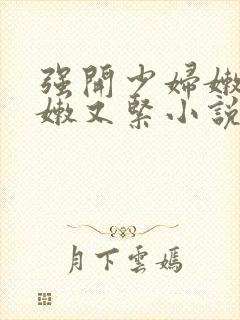 强開少婦嫩
嫩又緊小說
月下雲嫣